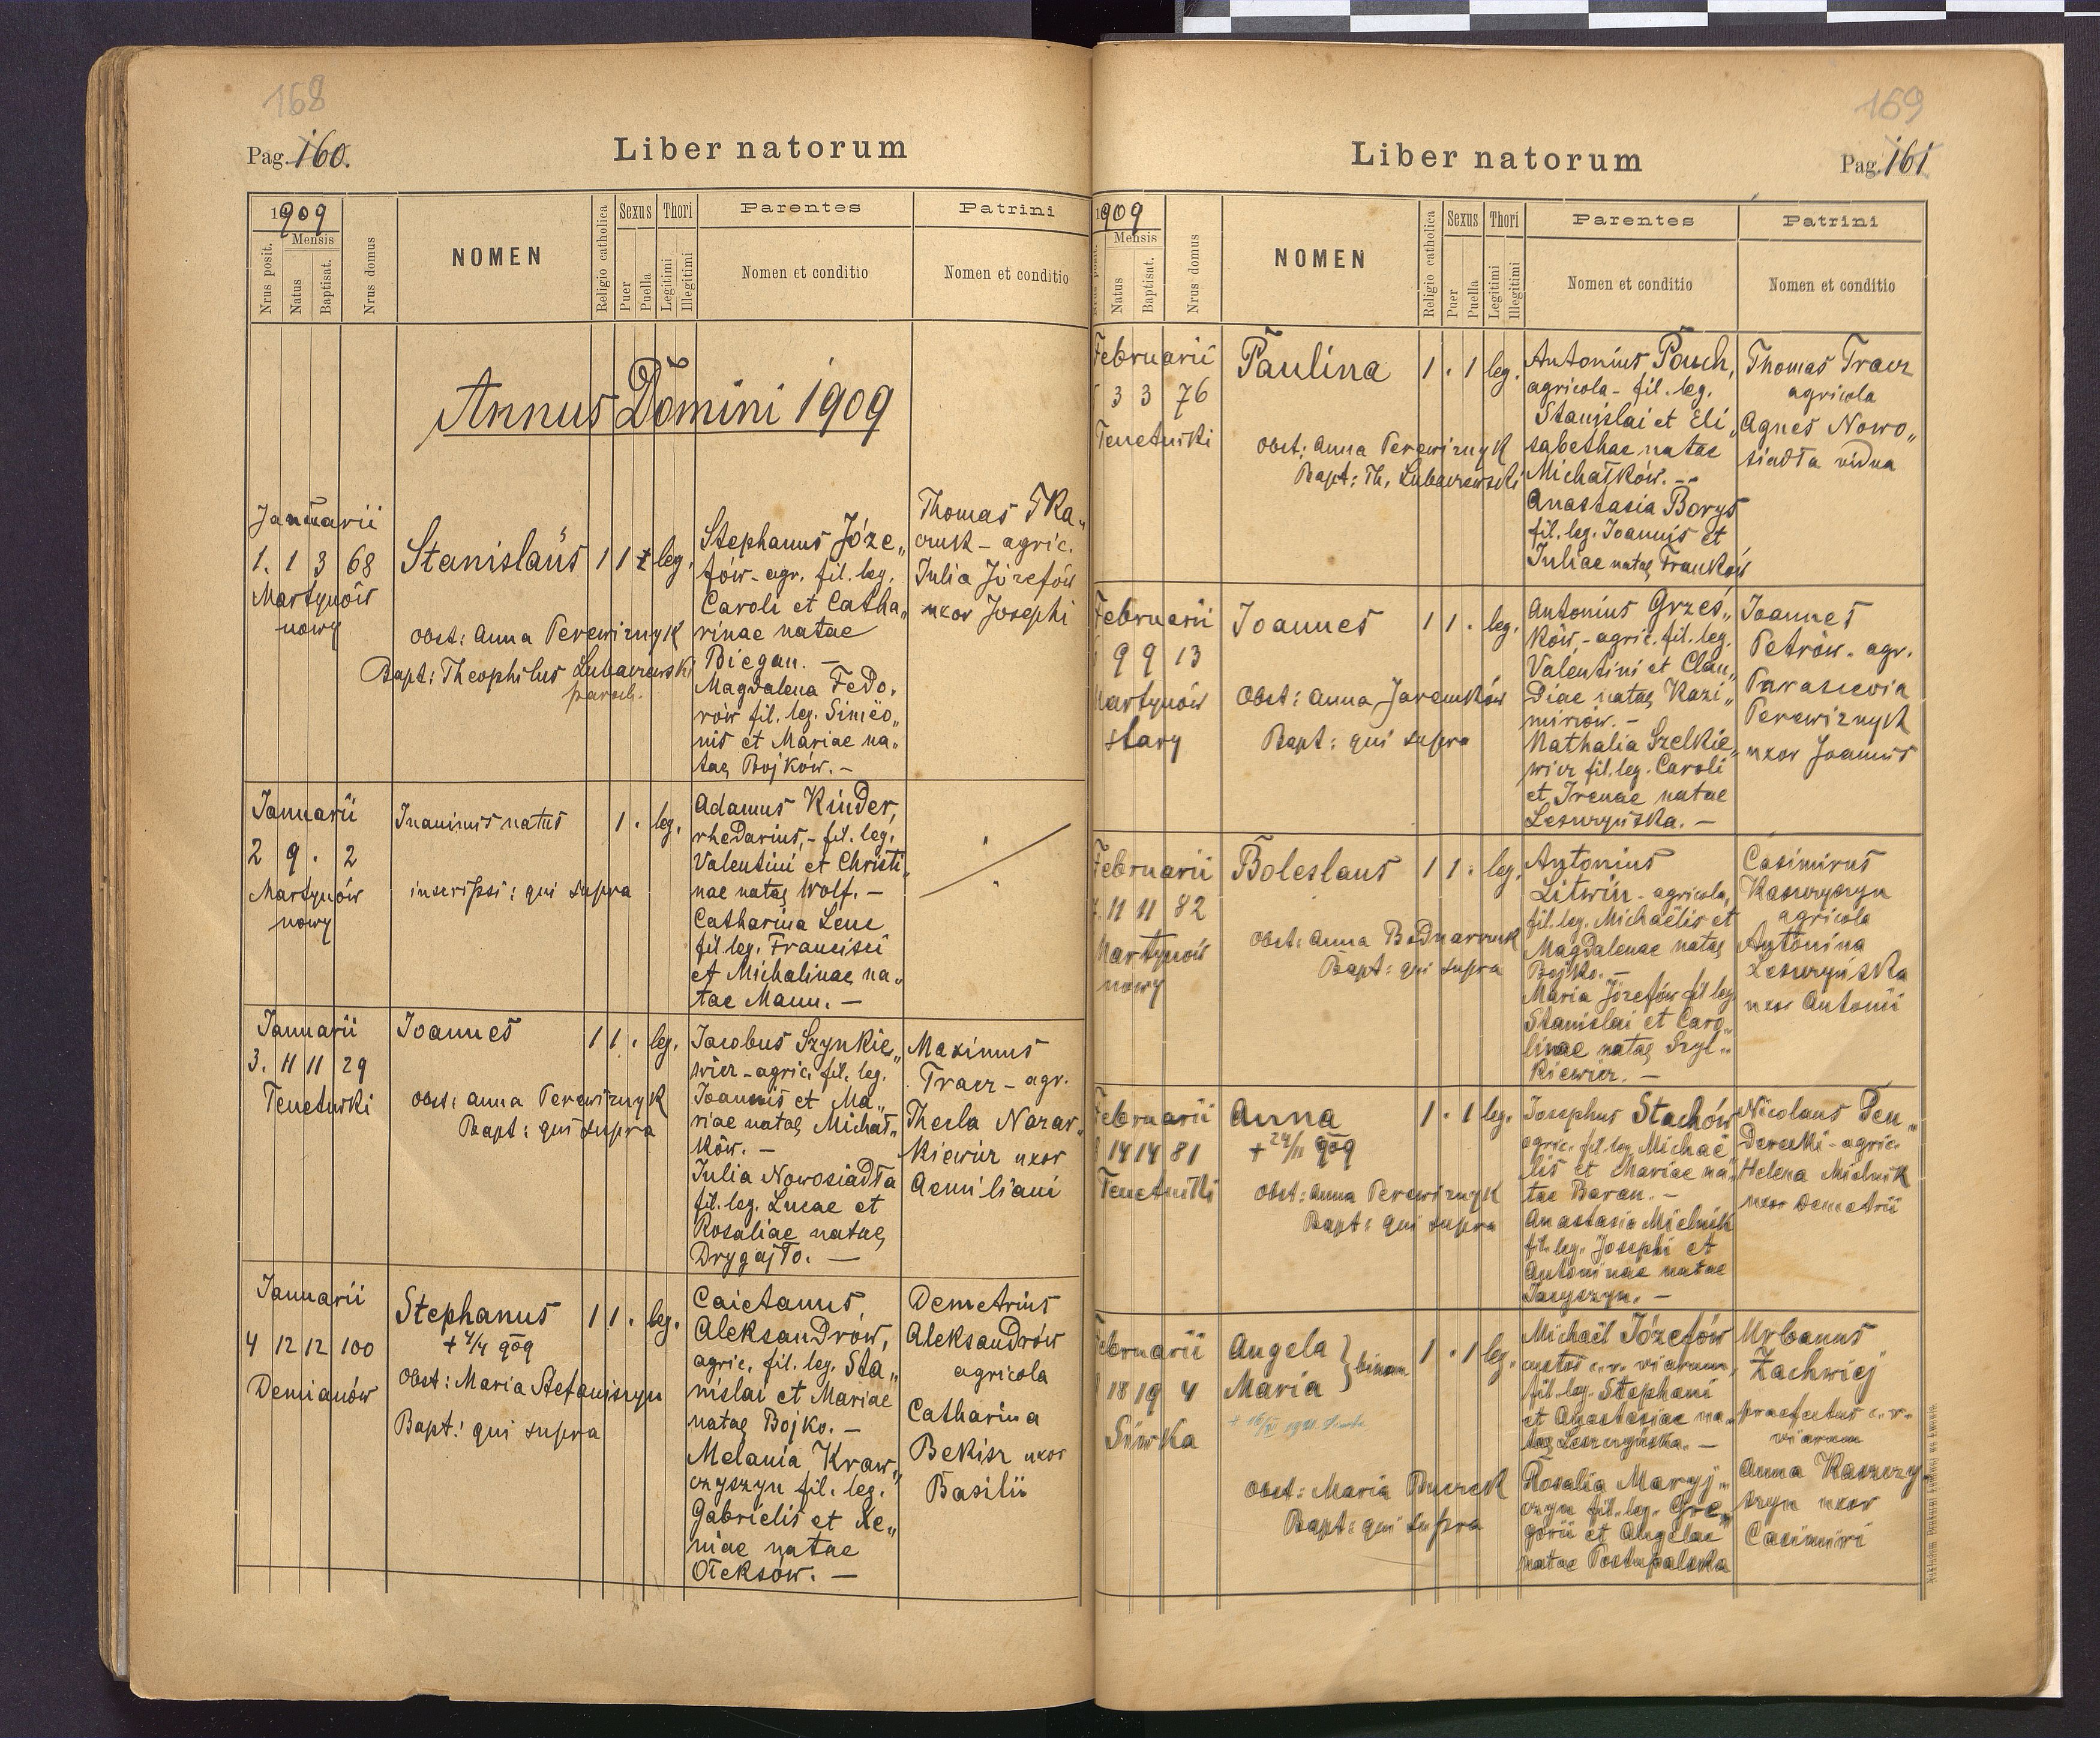 168
Pag. 160.
Liber natorum
1909
Mensis
Nrus posit.
Natus
Baptisat.
Nrus domus
NOMEN
Religio catholica
Sexus
Puer
Puella
Thori
Legitimi
Illegitimi
Parentes
Nomen et conditio
Patrini
Nomen et conditio
Annus Domini 1909
Januarii
1. 1 3 68
Martynów
nowy
Stanislaus
1 1 leg.
Obst: Anna Perewiznyk
Bapt: Theophilus Lubaczewski
paroch.
Stephanus Józe„
fów - agr. fil. leg.
Caroli et Catha„
rinae natae
Biegan. —
Magdalena Fedo„
rów fil. leg. Simeo„
nis et Mariae na„
tae Bojków. —
Thomas Tka„
czuk - agric.
Julia Józefów
uxor Josephi
Januarii
2 9 . 2
Martynów
nowy
Inanimis natus
1 . leg.
inscripsi: qui supra
Adamus Kinder,
rhedarius, - fil. leg.
Valentini et Christi„
nae natae Wolf. —
Catharina Lenc
fil. leg. Francisci
et Michalinae na„
tae Mann. —
Januarii
3. 11 11 29
Tenetniki
Joannes
1 1 . leg.
Obst: Anna Perewiznyk
Bapt: qui supra
Jacobus Szynkie„
wicz - agric. fil. leg.
Joannis et Ma„
riae natae Michał„
ków. —
Julia Nowosiadła
fil. leg. Lucae et
Rosaliae natae
Drygajło. —
Maximus
Tracz - agr.
Thecla Nazar„
kiewicz uxor
Aemiliani
Januarii
4 12 12 100
Demianów
Stephanus
+ 4/4 909
1 1 . leg.
Obst: Maria Stefaniszyn
Bapt: qui supra
Caietanus
Aleksandrów,
agric. fil. leg. Sta„
nislai et Mariae
natae Bojko. —
Melania Kraw„
czyszyn fil. leg.
Gabrielis et Xe„
niae natae
Ołeksów. —
Demetrius
Aleksandrów
agricola
Catharina
Bekisz uxor
Basilii
169
Liber natorum
Pag. 161
1909
Mensis
Natus
Baptisat.
Nrus domus
NOMEN
Religio catholica
Sexus
Puer
Puella
Thori
Legitimi
Illegitimi
Parentes
Nomen et conditio
Patrini
Nomen et conditio
Februarii
3 3 76
Tenetniki
Paulina
1 . 1 leg.
Obst: Anna Perewiznyk
Bapt: Th. Lubaczewski
Antonius Pauch,
agricola - fil. leg.
Stanislai et Eli„
sabethae natae
Michałków. —
Anastasia Borys
fil. leg. Joannis et
Juliae natae Franków
Thomas Tracz
agricola
Agnes Nowo„
siadła vidua
Februarii
9 9 13
Martynów
stary
Joannes
1 1 . leg.
Obst: Anna Jaremków
Bapt: qui supra
Antonius Grześ„
ków, - agric. fil. leg.
Valentini et Clau„
diae natae Kazi„
mirów. —
Nathalia Szelkie„
wicz fil. leg. Caroli
et Irenae natae
Leszczyńska. —
Joannes
Petrów - agr.
Parascevia
Perewiznyk
uxor Joannis
Februarii
11 11 82
Martynów
nowy
Boleslaus
1 1 . leg.
Obst: Anna Bodnarczuk
Bapt: qui supra
Antonius
Litwin - agricola,
fil. leg. Michaëlis et
Magdalenae natae
Bojko. —
Maria Józefów fil. leg.
Stanislai et Caro„
linae natae Szyl„
kiewicz. —
Casimirus
Kaszczyszyn
agricola
Antonina
Leszczyńska
uxor Antonii
Februarii
14 14 81
Tenetniki
Anna
+ 24/11 909
1 . 1 leg.
Obst: Anna Perewiznyk
Bapt: qui supra
Josephus Stachów
agric. fil. leg. Michaë
lis et Mariae na„
tae Baran. —
Anastasia Mielnik
fil. leg. Josephi et
Antoninae natae
Jacyszyn. —
Nicolaus Pen„
derecki - agric.
Helena Mielnik
uxor Demetrii
Februarii
18 19 4
Siwka
Angela
Maria
} binom
1 . 1 leg.
Obst: Maria
Bapt: qui supra
Michaël Józefów
custos c. r. viarum,
fil. leg. Stephani
et Anastasiae na„
tae Leszczyńska. —
Rosalia Maryj„
czyn fil. leg. Gre„
gorii et Angelae
natae Postupalska
Urbanus
Zachwiej
praefectus c. r.
viarum
Anna Kaszczy„
szyn uxor
Casimiri